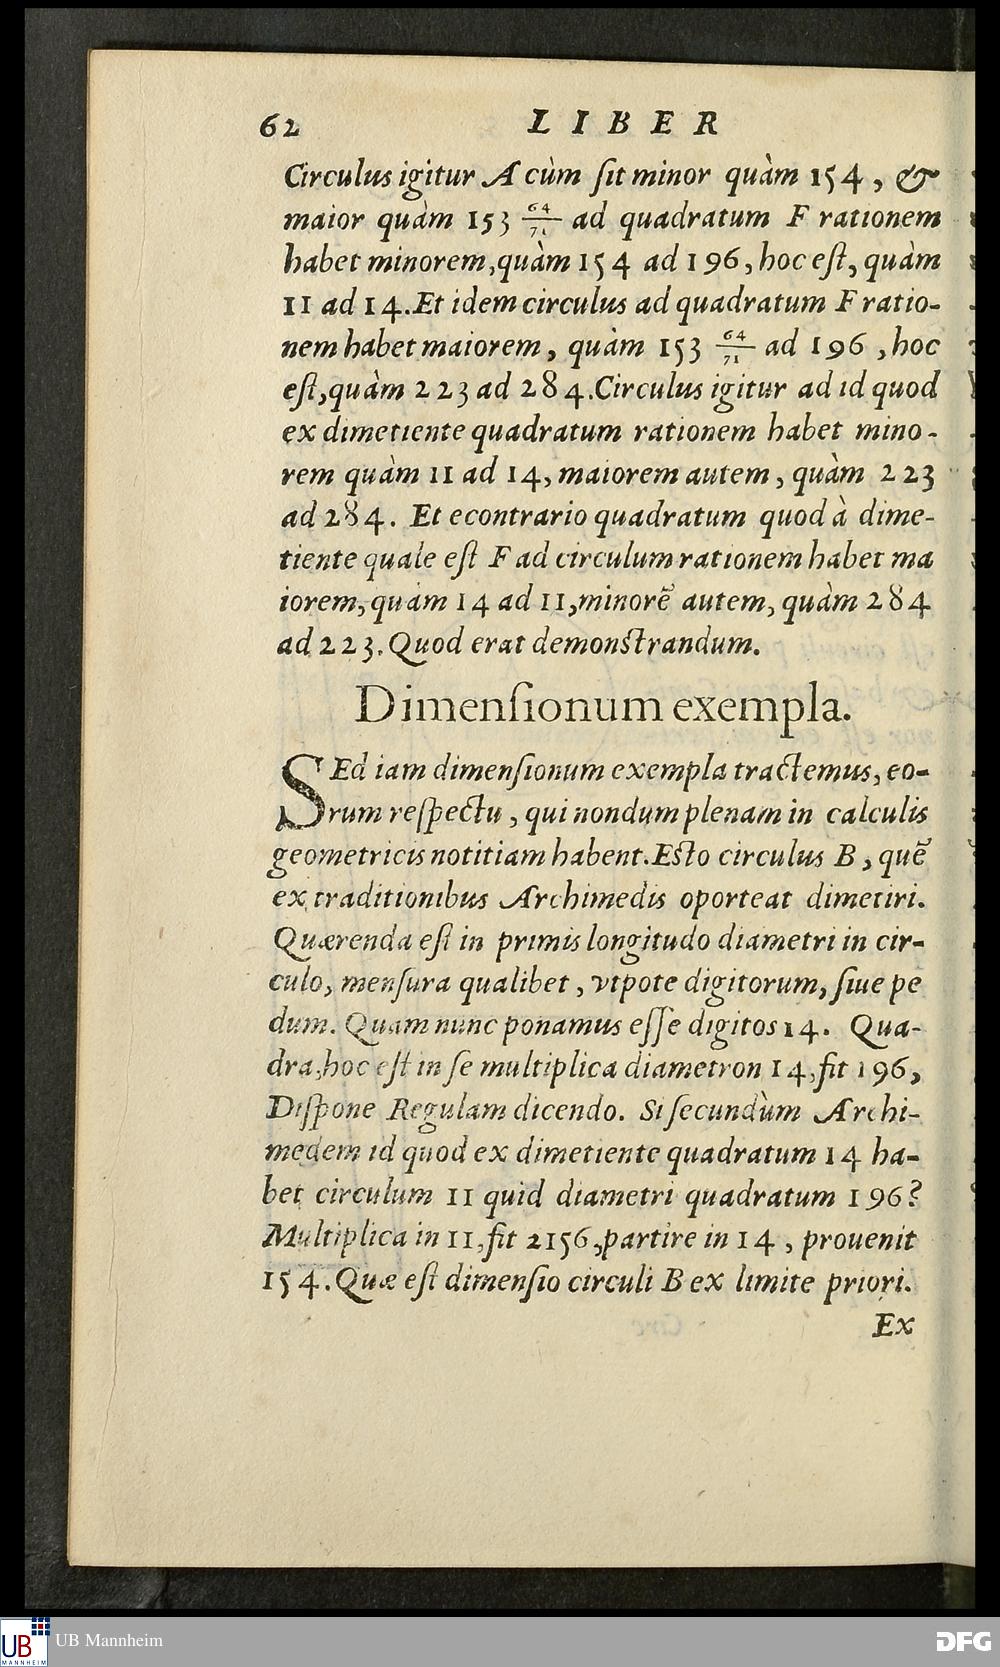 62 LIBER
Circulus igitur A cùm ſit minor quàm 154, &
maior quàm 153 64/71 ad quadratum F rationem
habet minorem, quàm 154 ad 196, hoc eſt, quàm
11 ad 14. Et idem circulus ad quadratum F ratio-
nem habet maiorem, quàm 153 64/71 ad 196, hoc
eſt, quàm 223 ad 284. Circulus igitur ad id quod
ex dimetiente quadratum rationem habet mino-
rem quàm 11 ad 14, maiorem autem, quàm 223
ad 284. Et econtrario quadratum quod à dime-
tiente quale eſt F ad circulum rationem habet ma
iorem, quàm 14 ad 11, minorē autem, quàm 284
ad 223. Quod erat demonſtrandum.
Dimenſionum exempla.
SEd iam dimenſionum exempla tractemus, eo-
rum reſpectu, qui nondum plenam in calculis
geometricis notitiam habent. Eſto circulus B, quē
ex traditionibus Archimedis oporteat dimetiri.
Quærenda eſt in primis longitudo diametri in cir-
culo, menſura qualibet, vtpote digitorum, ſiue pe
dum. Quam nunc ponamus eſſe digitos 14. Qua-
dra, hoc eſt in ſe multiplica diametron 14, fit 196,
Diſpone Regulam dicendo. Si ſecundùm Archi-
medem id quod ex dimetiente quadratum 14 ha-
bet circulum 11 quid diametri quadratum 196?
Multiplica in 11, fit 2156, partire in 14, prouenit
154. Quæ eſt dimenſio circuli B ex limite priori.
Ex
UB Mannheim
UB
MANNHEIM
DFG